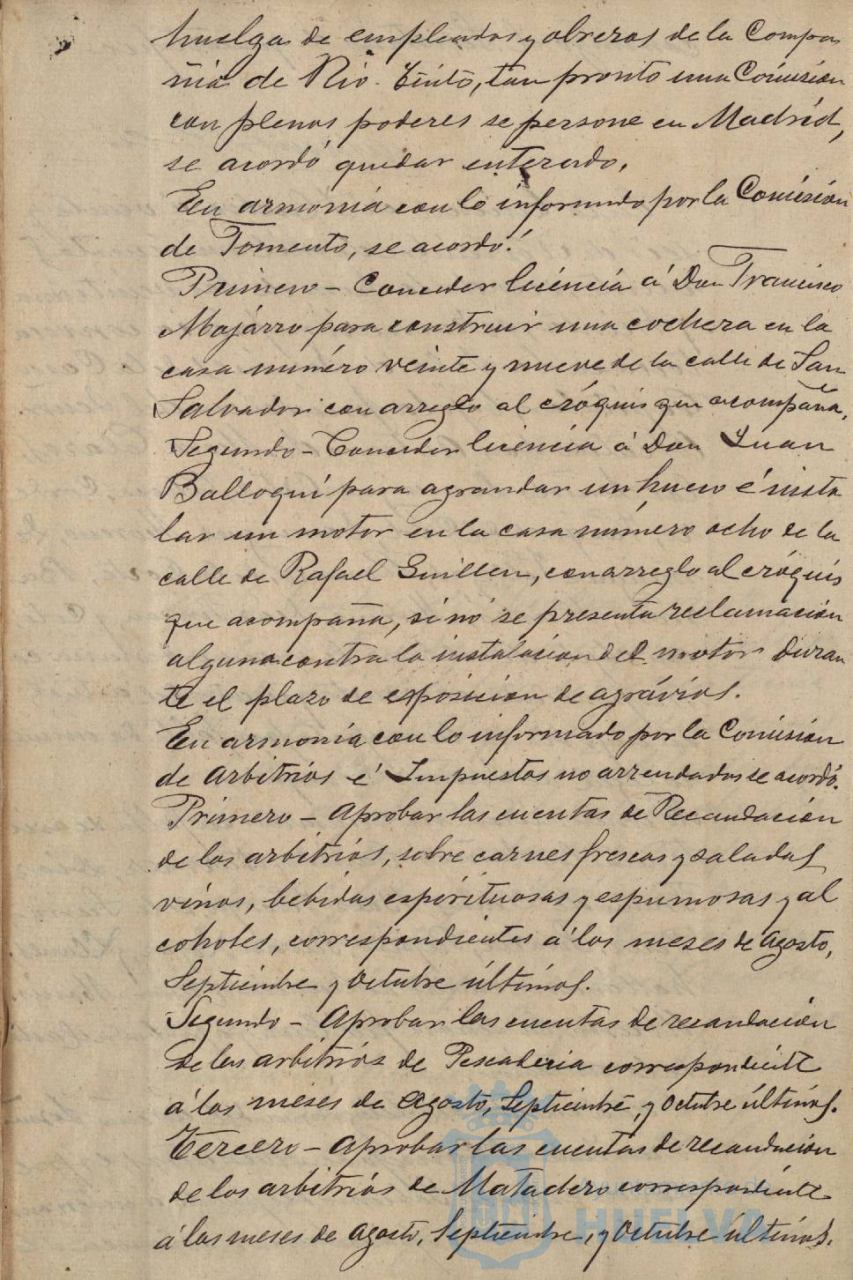 huelga de empleados y obreros de la Compa
ñia de Rio-Tinto, tan pronto una Comisión
con plenos poderes se persone en Madrid,
se acordó quedar enterado.
En armonía con lo informado por la Comisión
de Fomento, se acordó:
Primero - Conceder licencia á Don Francisco
Mojarro para construir una cochera en la
casa número veinte y nueve de la calle de San
Salvador con arreglo al cróquis que acompaña.
Segundo - Conceder licencia á Don Juan
Balloqui para agrandar un hueco é insta
lar un motor en la casa número ocho de la
calle de Rafael Guillen, con arreglo al cróquis
que acompaña, si no se presenta reclamación
alguna contra la instalacion del motor duran
te el plazo de exposicion de agrávios.
En armonía con lo informado por la Comisión
de Arbitrios é Impuestos no arrendados se acordó.
Primero - Aprobar las cuentas de Recaudación
de los arbitrios, sobre carnes frescas y saladas
vinos, bebidas espirituosas y espumosas y al
coholes, correspondientes á los meses de Agosto,
Septiembre y Octubre últimos.
Segundo - Aprobar las cuentas de recaudación
de los arbitrios de Pescaderia correspondiente
á los meses de Agosto, Septiembre, y Octubre últimos.
Tercero - Aprobar las cuentas de recaudación
de los arbitrios de Matadero correspondiente
á los meses de Agosto, Septiembre, y Octubre últimos.
HUELVA